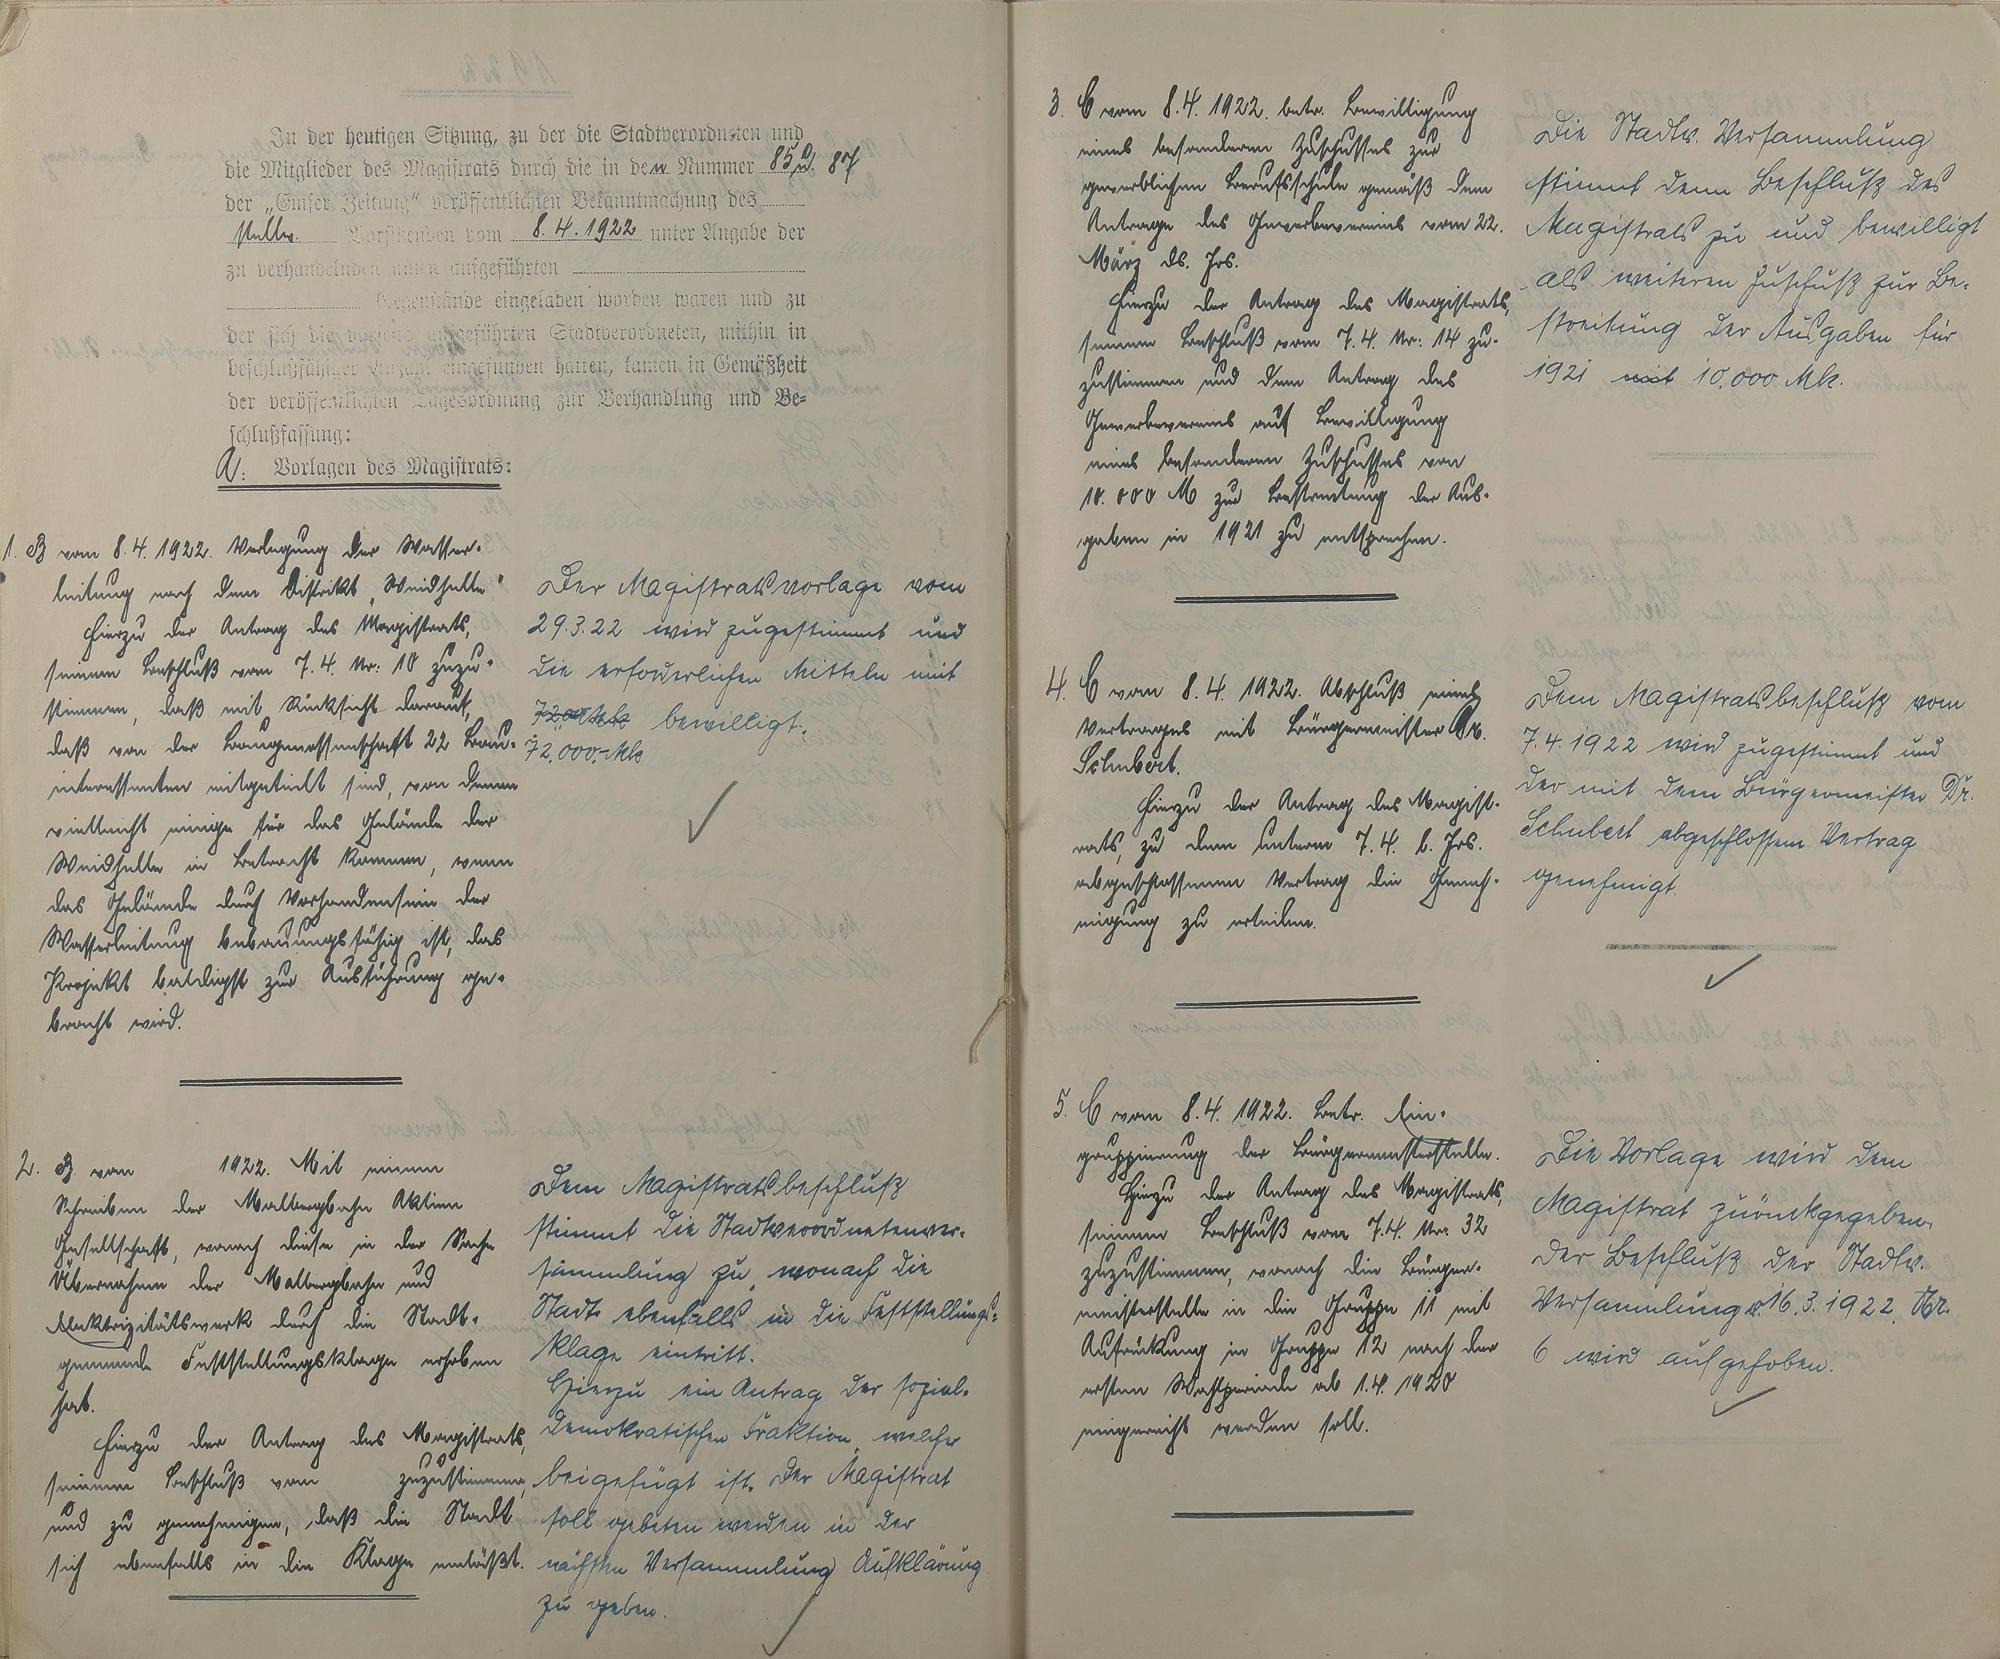 In der heutigen Sitzung, zu der die Stadtverordneten und
die Mitglieder des Magistrats durch die in den Nummer 85 u. 87
der „Emser Zeitung“ veröffentlichten Bekanntmachung des
stellv. Vorsitzenden vom 8.4.1922 unter Angabe der
zu verhandelnden unten aufgeführten
Gegenstände eingeladen worden waren und zu
der sich die vorseits aufgeführten Stadtverordneten, mithin in
beschlußfähiger Anzahl eingefunden hatten, kamen in Gemäßheit
der veröffentlichten Tagesordnung zur Verhandlung und Be-
schlußfassung:
A. Vorlagen des Magistrats:
1. B vom 8.4.1922. Verlegung der Wasser-
leitung nach dem Distrikt „Weidhelle“
Hierzu der Antrag des Magistrats,
seinem Beschluß vom 7.4. Nr: 10 zuzu-
stimmen, daß mit Rücksicht darauf,
daß von der Baugenossenschaft 22 Bau-
interessenten mitgeteilt sind, von denen
vielleicht einige für das Gelände der
Weidhelle in Betracht kommen, wenn
das Gelände durch Vorhandensein der
Wasserleitung bebauungsfähig ist, das
Projekt baldigst zur Ausführung ge-
bracht wird.
Der Magistratsvorlage vom
29.3.22 wird zugestimmt und
die erforderlichen Mitteln mit
bewilligt.
72.000.- Mk
2. B vom 1922. Mit einem
Schreiben der Malbergbahn Aktien
Gesellschaft, wonach diese in der Sache
Übernahme der Malbergbahn und
Elektrizitätswerk durch die Stadt-
gemeinde Feststellungsklage erhoben
hat.
Hierzu der Antrag des Magistrats,
seinem Beschluß vom zuzustimmen,
und zu genehmigen, daß die Stadt
sich ebenfalls in die Klage einläßt.
Dem Magistratsbeschluß
stimmt die Stadtverordnetenver-
sammlung zu, wonach die
Stadt ebenfalls in die Feststellungs-
klage eintritt.
Hierzu ein Antrag der sozial-
demokratischen Fraktion, welcher
beigefügt ist. Der Magistrat
soll gebeten werden in der
nächsten Versammlung Aufklärung
zu geben.
3. C vom 8.4.1922. betr. Bewilligung
eines besonderen Zuschusses zur
gewerblichen Berufsschule gemäß dem
Antrage des Gewerbevereins vom 22.
März ds. Jrs.
Hierzu der Antrag des Magistrats,
seinem Beschluß vom 7.4. Nr: 14 zu-
zustimmen und dem Antrag des
Gewerbevereins auf Bewilligung
eines besonderen Zuschusses von
10.000 M zur Bestreitung der Aus-
gaben in 1921 zu entsprechen.
Die Stadtv. Versammlung
stimmt dem Beschluß des
Magistrats zu und bewilligt
als weiteren Zuschuß zur Be-
streitung der Ausgaben für
1921 mit 10.000 Mk.
4. C vom 8.4.1922. Abschluß eines
Vertrages mit Bürgermeister Dr.
Schubert.
Hierzu der Antrag des Magist-
rats, zu dem unterm 7.4. l. Jrs.
abgeschlossenen Vertrag die Geneh-
migung zu erteilen.
Dem Magistratsbeschluß vom
7.4.1922 wird zugestimmt und
der mit dem Bürgermeister Dr.
Schubert abgeschlossem Vertrag
genehmigt.
5. C vom 8.4.1922. Betr. Ein-
gruppierung der Bürgermeisterstelle.
Hierzu der Antrag des Magistrats,
seinem Beschluß vom 7.4. Nr. 32
zuzustimmen, wonach die Bürger-
meisterstelle in die Gruppe 11 mit
Aufrückung in Gruppe 12 nach der
ersten Wahlperiode ab 1.4.1920
eingereiht werden soll.
Die Vorlage wird dem
Magistrat zurückgegeben.
Der Beschluß der Stadtv.
Versammlung v. 16.3.1922, Nr.
6 wird aufgehoben.